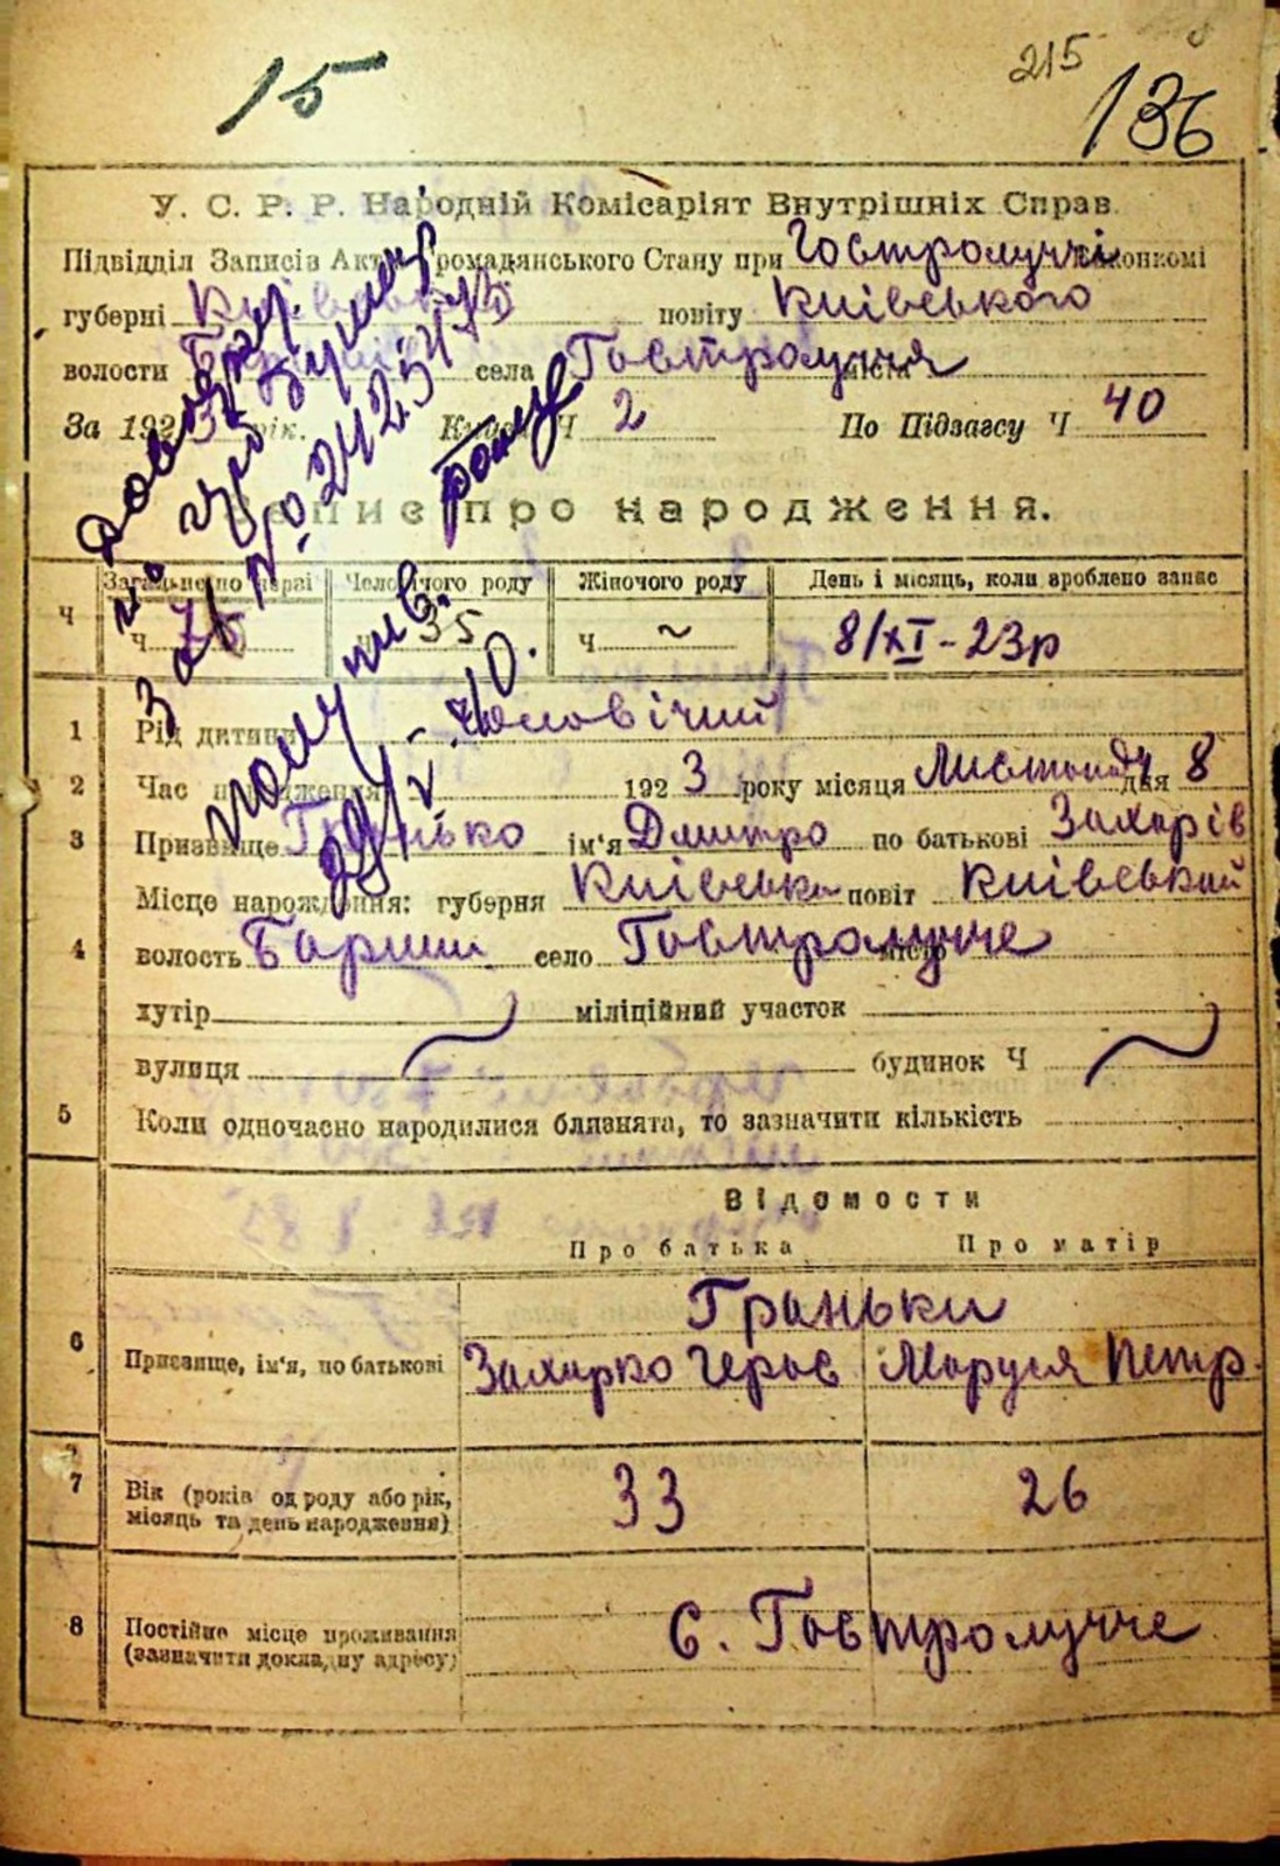 15
215
136
У. С. Р. Р. Народній Комісаріят Внутрішніх Справ.
Підвідділ Записів Актів Громадянського Стану при Гостролуччі виконкомі
губерні Київської повіту Київського
волости села Гостролуччя міста
За 1923 рік. Книга Ч 2 По Підзагсу Ч 40
Запис про народження.
Загальне по черзі Человічого роду Жіночого роду День і місяць, коли зроблено запис
Ч ч. 75 ч. 35 ч. ~ 8/XI - 23р
1 Рід дитини Чоловічий
2 Час народження 1923 року місяця Листопаду дня 8
3 Призвище Гранько ім'я Дмитро по батькові Захарів
Місце нарождення: губерня Київська повіт Київський
4 волость Бариш село Гостролучче місто
хутір міліційний участок
вулиця будинок Ч
5 Коли одночасно народилися близнята, то зазначити кількість
Відомости
Про батька Про матір
Граньки
6 Призвище, ім'я, по батькові Захарко Герас Маруся Петр.
7 Вік (років од роду або рік, 33 26
місяць та день народження)
8 Постійне місце проживання с. Гостролучче
(зазначити докладну адресу)
№ 2425473